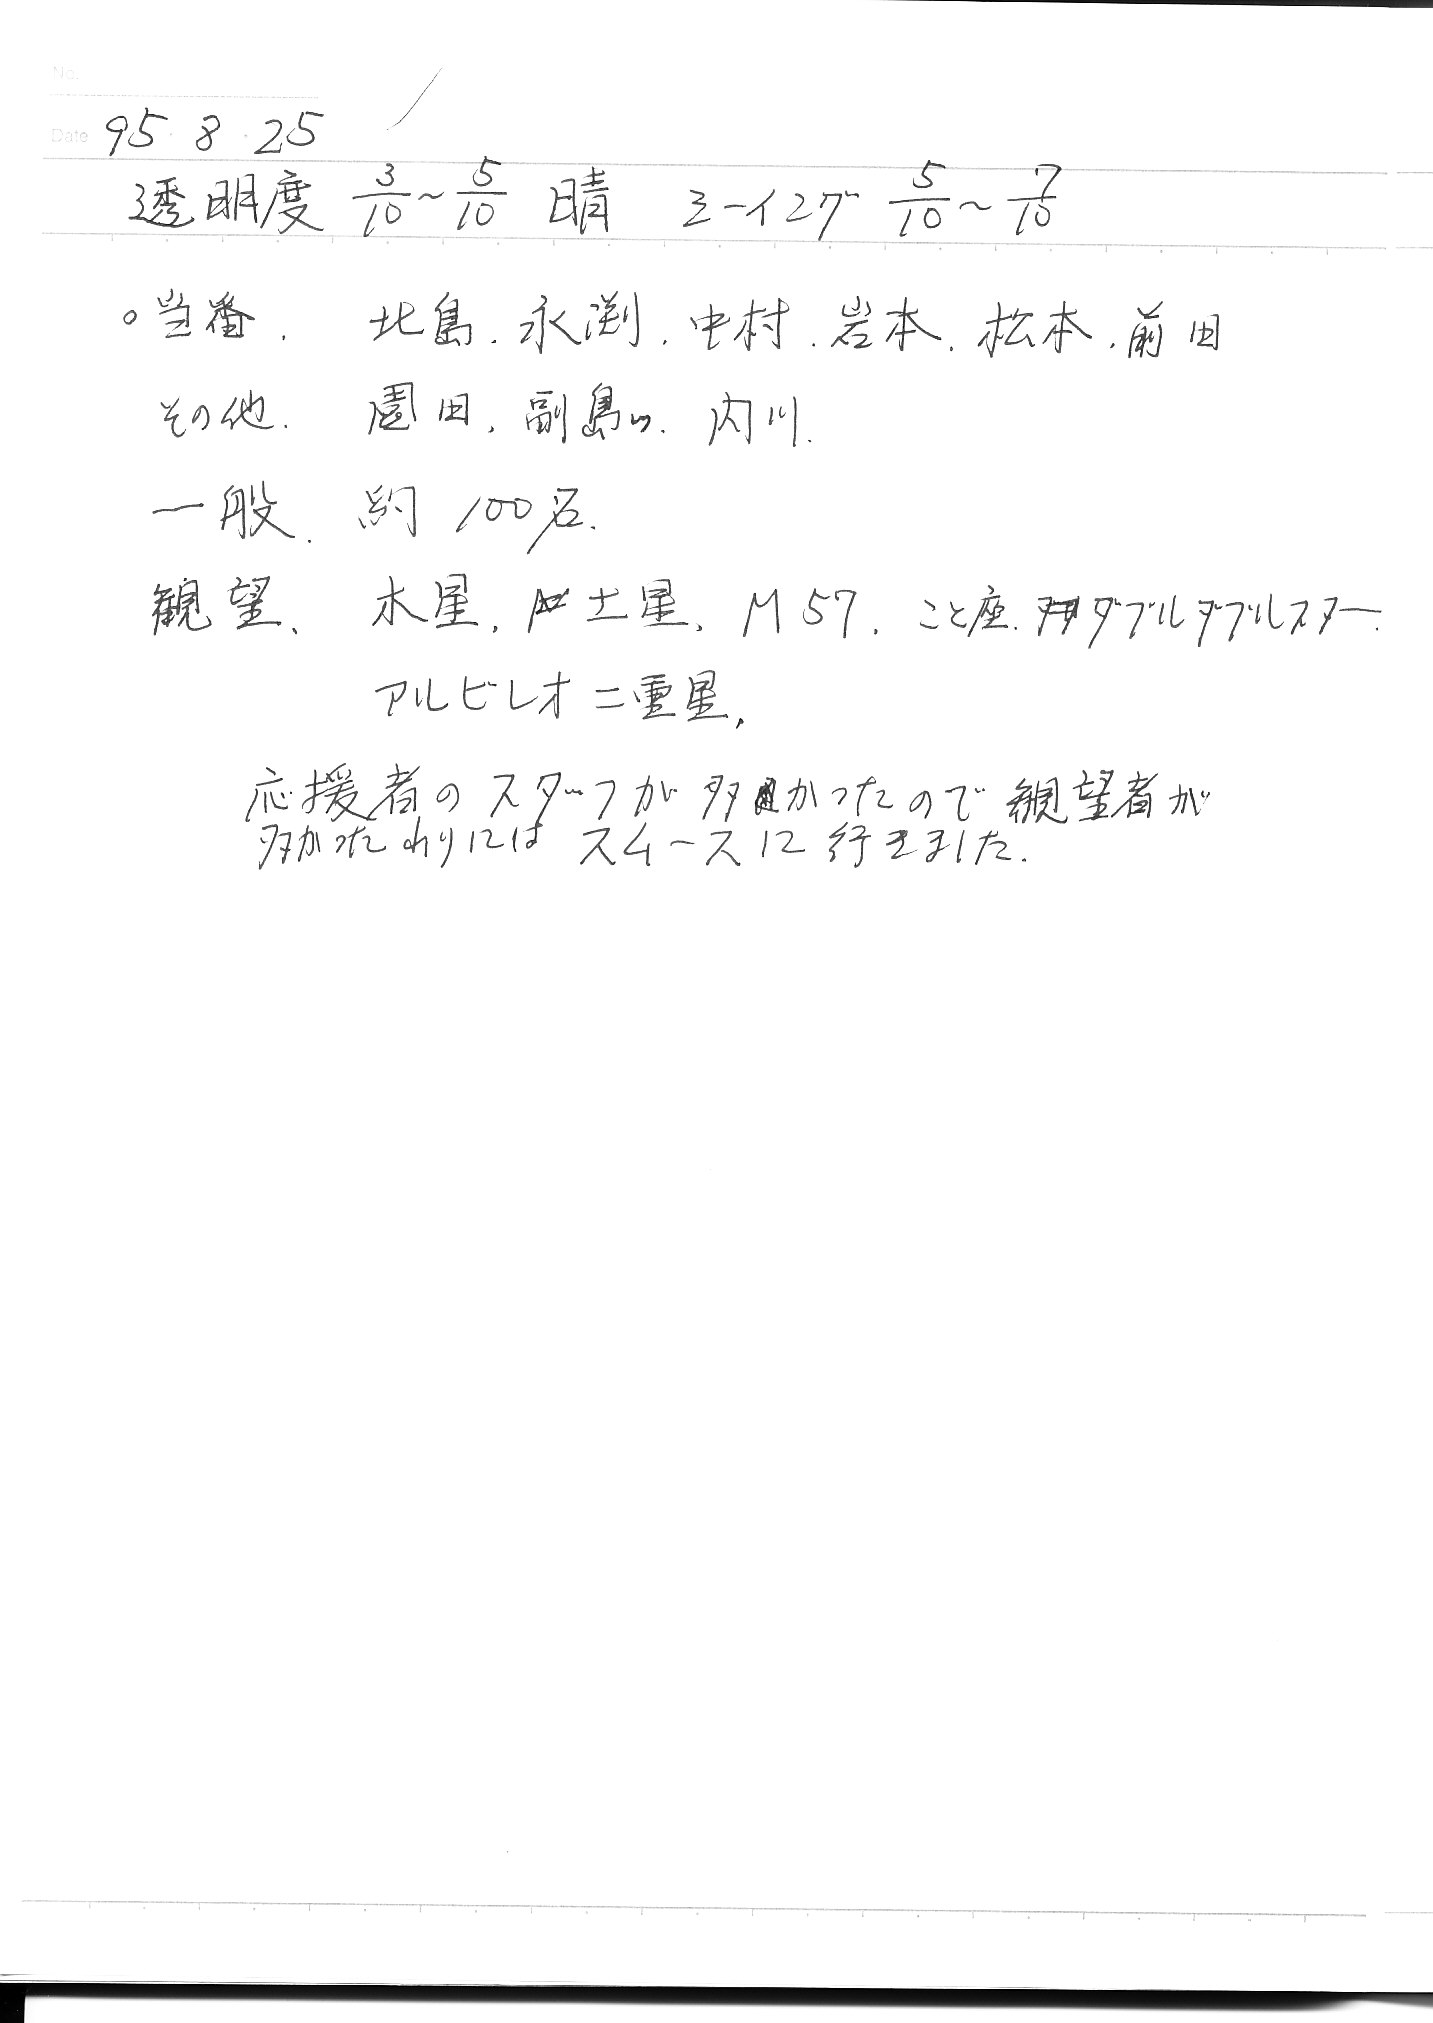 No.
Date 95・8・25
透明度 3/10~5/10 晴 シーイング 5/10~7/10
○当番. 北島.永渕.中村.岩本.松本.前田
その他. 園田.副島.内川.
一般. 約100名.
観望、 木星.土星.M57.こと座.ダブルダブルスター.
アルビレオ二重星.
応援者のスタッフが多かったので観望者が
多かったわりにはスムースに行きました.